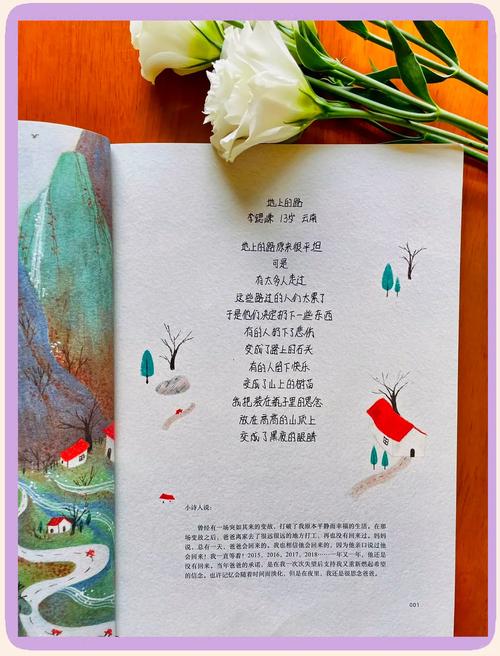 地上的路
李锶谦 13岁 云南
地上的路原来很平坦
可是
有太多人走过
这些路过的人们太累了
于是他们决定扔下一些东西
有的人扔下了悲伤
变成了路上的石头
有的人留下快乐
变成了山上的树苗
我把装在瓶子里的思念
放在高高的山顶上
变成了黑夜的眼睛
小诗人说:
曾经有一场突如其来的变故,打破了我原本平静而幸福的生活。在那
场变故之后,爸爸离家去了很远很远的地方打工,再也没有回来过。妈妈
说,总有一天,爸爸会回来的。我也相信他会回来的,因为他亲口说过他
会回来!我一直等着!2015、2016、2017、2018……一年又一年,他还是
没有回来。当年爸爸的承诺,是在我一次次失望后支持我又重新燃起希望
的信念。也许记忆会随着时间而淡化,但是在夜里,我还是很思念爸爸。
001